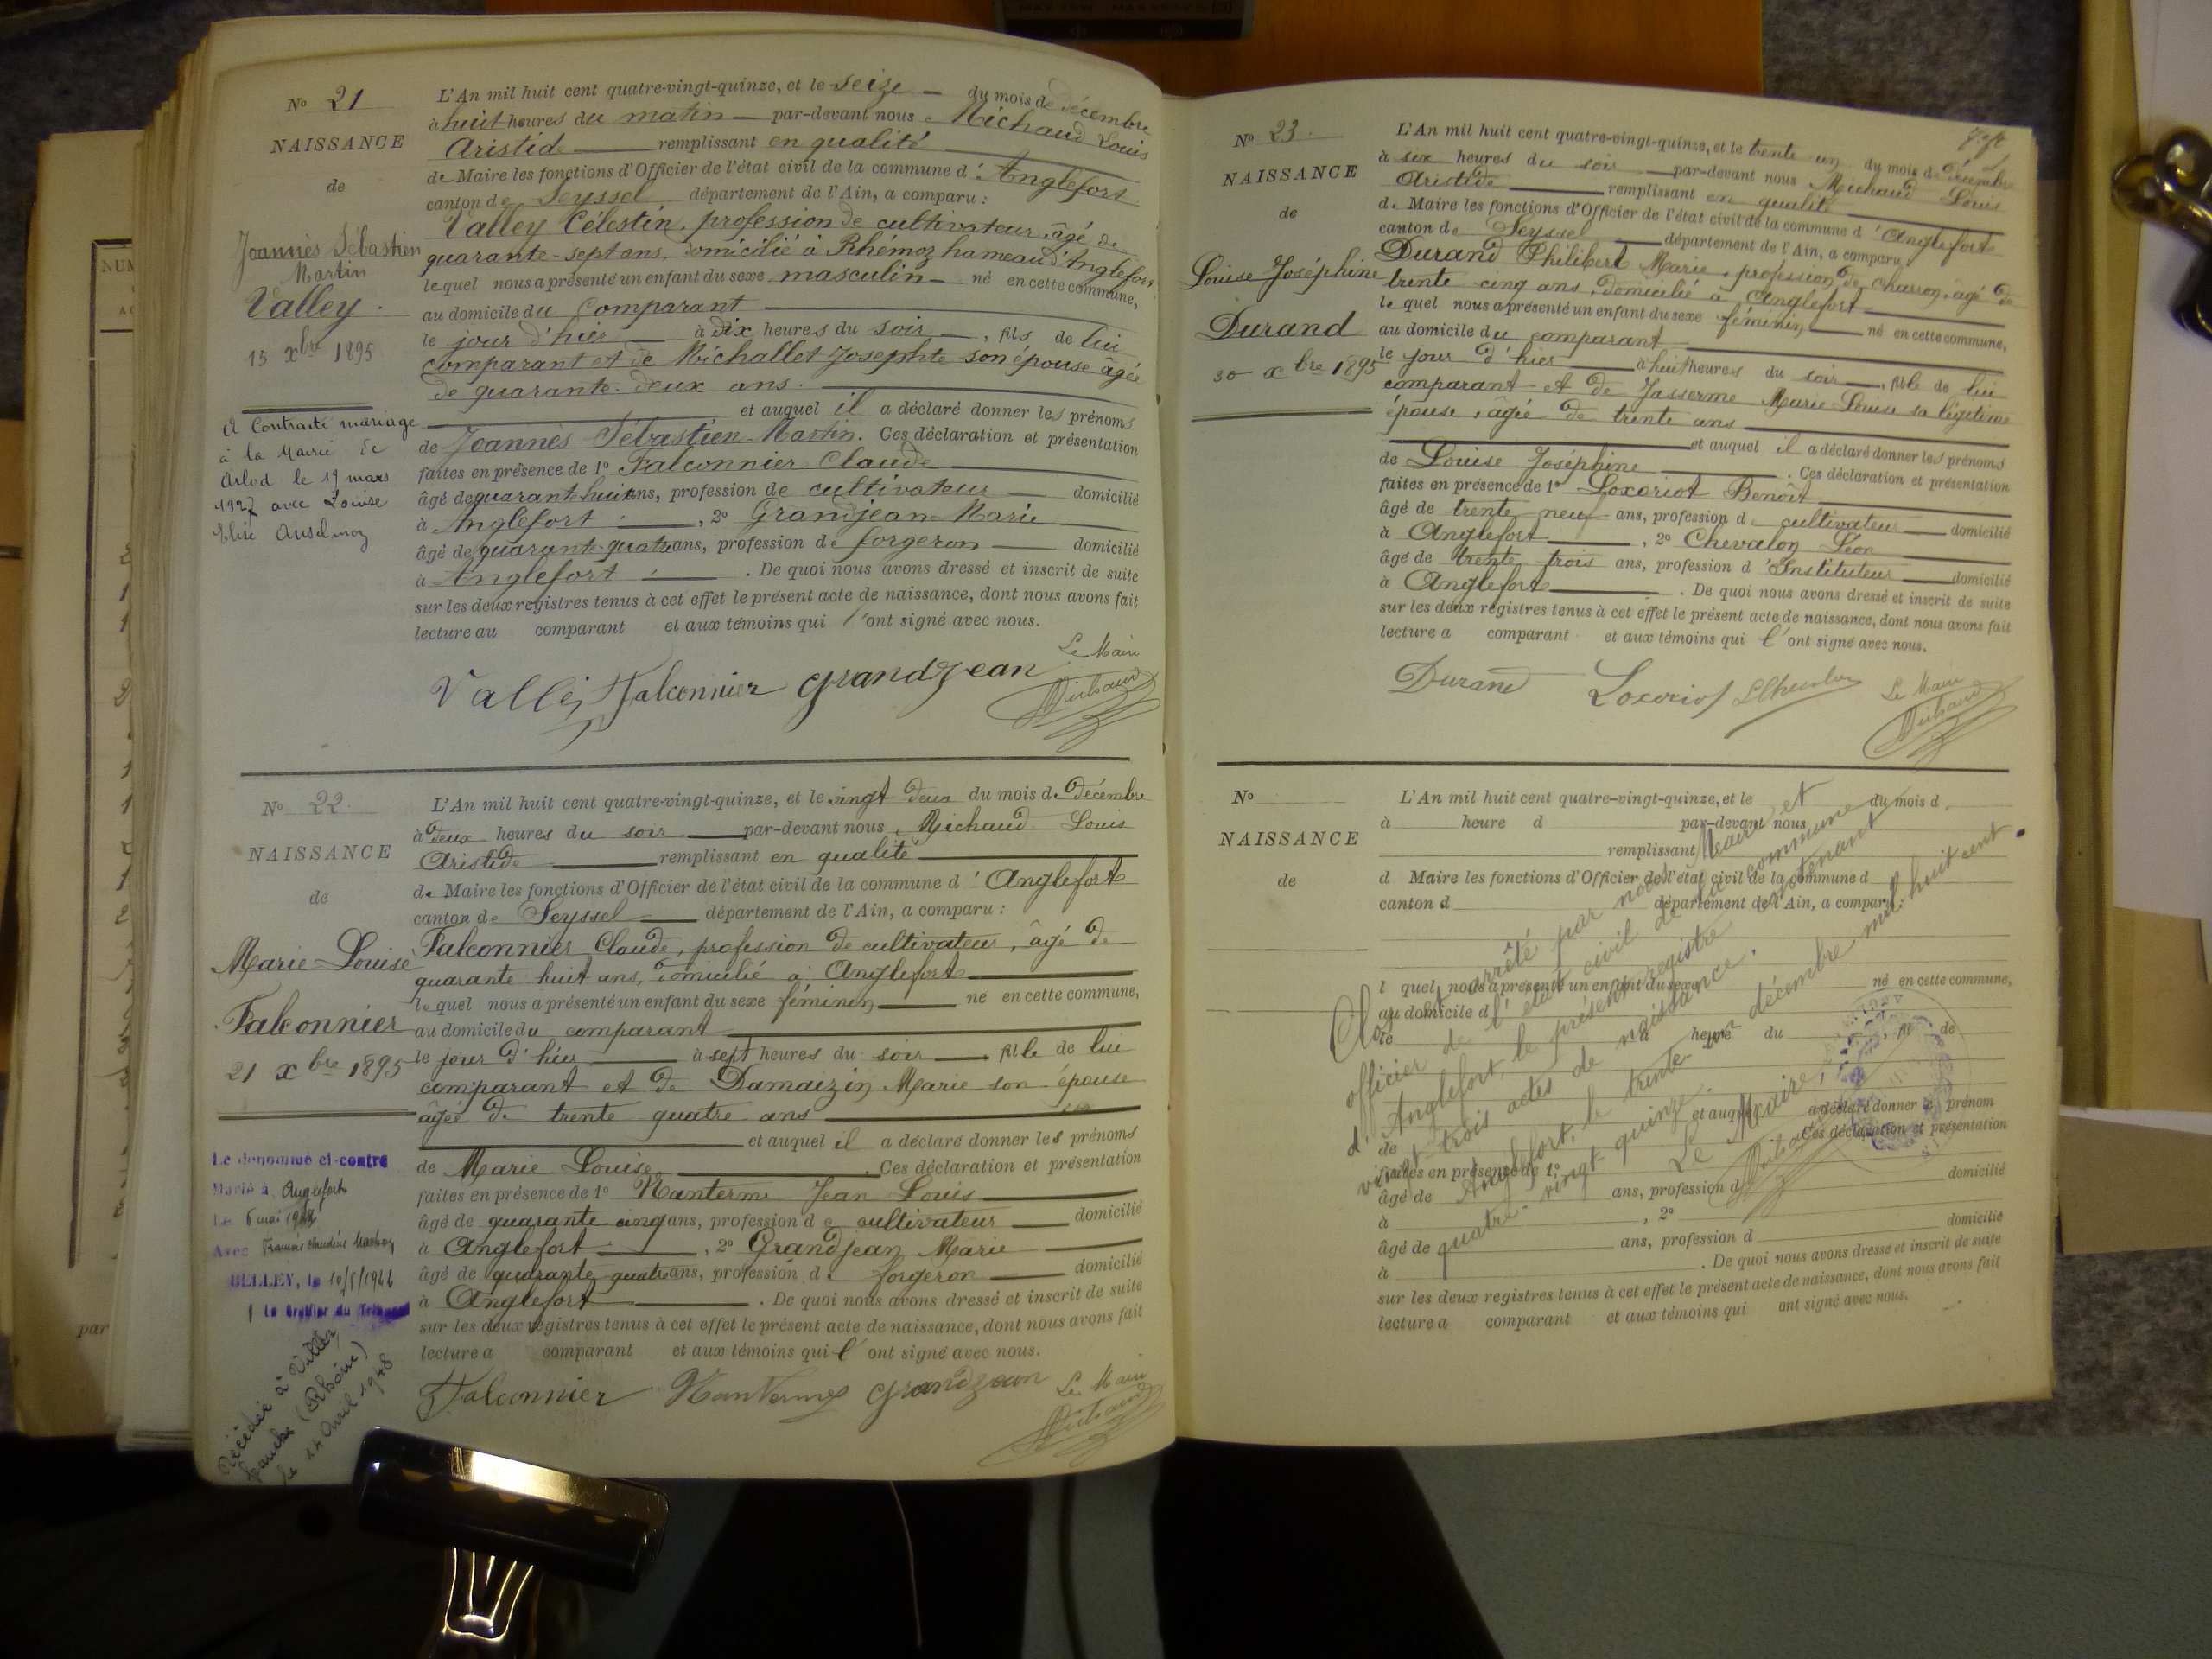 N° 21
NAISSANCE
de
Joannès Sébastien
Martin
Valley.
15 xbre 1895
A Contracté mariage
à la Mairie de
Arlod le 19 mars
1927 avec Louise
Elise Anselmoz
L'An mil huit cent quatre-vingt-quinze, et le seize — du mois de décembre
à huit heures du matin — par-devant nous Michaud Louis
Aristid — remplissant en qualité
de Maire les fonctions d'Officier de l'état civil de la commune d'Anglefort
canton de Seyssel département de l'Ain, a comparu :
Valley Célestin, profession de cultivateur, âgé de
quarante-sept ans, domicilié à Rhémoz hameau d'Anglefort
lequel nous a présenté un enfant du sexe masculin — né en cette commune,
au domicile du comparant
le jour d'hier — à dix heures du soir —, fils de lui
comparant et de Michallet Josephte son épouse âgée
de quarante-deux ans.
et auquel il a déclaré donner les prénoms
de Joannès Sébastien Martin. Ces déclaration et présentation
faites en présence de 1° Falconnier Claude
âgé de quarante huit ans, profession de cultivateur — domicilié
à Anglefort —, 2° Grandjean Marie
âgé de quarante-quatre ans, profession de forgeron — domicilié
à Anglefort —. De quoi nous avons dressé et inscrit de suite
sur les deux registres tenus à cet effet le présent acte de naissance, dont nous avons fait
lecture au comparant et aux témoins qui l'ont signé avec nous.
Le Maire
Valley Falconnier Grandjean Michaud
N° 22
NAISSANCE
de
Marie-Louise
Falconnier
21 xbre 1895
Le dénommé ci-contre
Marié à Anglefort
Le 6 mai
Avec
BELLEY, le 10/5/1944
Le Greffier du Tribunal
Décédée à Ville
franche (Rhône)
le 14 Avril 1948
L'An mil huit cent quatre-vingt-quinze, et le vingt deux du mois de décembre
à deux heures du soir — par-devant nous Michaud Louis
Aristide — remplissant en qualité
de Maire les fonctions d'Officier de l'état civil de la commune d'Anglefort
canton de Seyssel — département de l'Ain, a comparu :
Falconnier Claude, profession de cultivateur, âgé de
quarante huit ans, domicilié à Anglefort
lequel nous a présenté un enfant du sexe féminin — né en cette commune,
au domicile du comparant
le jour d'hier — à sept heures du soir —, fille de lui
comparant et de Damaizin Marie son épouse
âgée de trente quatre ans
et auquel il a déclaré donner les prénoms
de Marie Louise. Ces déclaration et présentation
faites en présence de 1° Nanterme Jean Louis
âgé de quarante cinq ans, profession de cultivateur — domicilié
à Anglefort —, 2° Grandjean Marie
âgé de quarante quatre ans, profession de forgeron — domicilié
à Anglefort —. De quoi nous avons dressé et inscrit de suite
sur les deux registres tenus à cet effet le présent acte de naissance, dont nous avons fait
lecture a comparant et aux témoins qui l'ont signé avec nous.
Falconnier Nanterme Grandjean Le Maire
Michaud
N° 23
NAISSANCE
de
Louise Joséphine
Durand
30 xbre 1895
L'An mil huit cent quatre-vingt-quinze, et le trente un du mois de décembre
à six heures du soir — par-devant nous Michaud Louis
Aristide — remplissant en qualité
de Maire les fonctions d'Officier de l'état civil de la commune d'Anglefort
canton de Seyssel — département de l'Ain, a comparu
Durand Philibert Marie, profession de charron, âgé de
trente cinq ans, domicilié à Anglefort
lequel nous a présenté un enfant du sexe féminin — né en cette commune,
au domicile du comparant
le jour d'hier — à huit heures du soir —, fille de lui
comparant et de Jasserme Marie-Louise sa légitime
épouse, âgée de trente ans
et auquel il a déclaré donner les prénoms
de Louise Joséphine —. Ces déclaration et présentation
faites en présence de 1° Loxoriot Benoît
âgé de trente neuf ans, profession de cultivateur — domicilié
à Anglefort —, 2° Chevalon Léon
âgé de trente trois ans, profession d'Instituteur — domicilié
à Anglefort —. De quoi nous avons dressé et inscrit de suite
sur les deux registres tenus à cet effet le présent acte de naissance, dont nous avons fait
lecture a comparant et aux témoins qui l'ont signé avec nous.
Durand Loxoriot LChevalon Le Maire
Michaud
N°
NAISSANCE
de
L'An mil huit cent quatre-vingt-quinze, et le du mois d
à heure d par-devant nous
remplissant
d Maire les fonctions d'Officier de l'état civil de la commune d
canton d département de l'Ain, a comparu :
l quel nous a présenté un enfant du sexe né en cette commune,
au domicile d
le à heure du , fil de
et auquel a déclaré donner le prénom
de Ces déclaration et présentation
faites en présence de 1°
âgé de ans, profession d domicilié
à , 2°
âgé de ans, profession d domicilié
à . De quoi nous avons dressé et inscrit de suite
sur les deux registres tenus à cet effet le présent acte de naissance, dont nous avons fait
lecture a comparant et aux témoins qui ont signé avec nous.
Clos et arrêté par nous Maire et
officier de l'état civil de la commune
d'Anglefort, le présent registre contenant
vingt trois actes de naissance.
Anglefort, le trente un décembre mil huit cent
quatre-vingt-quinze.
Le Maire,
Michaud
NUM
par